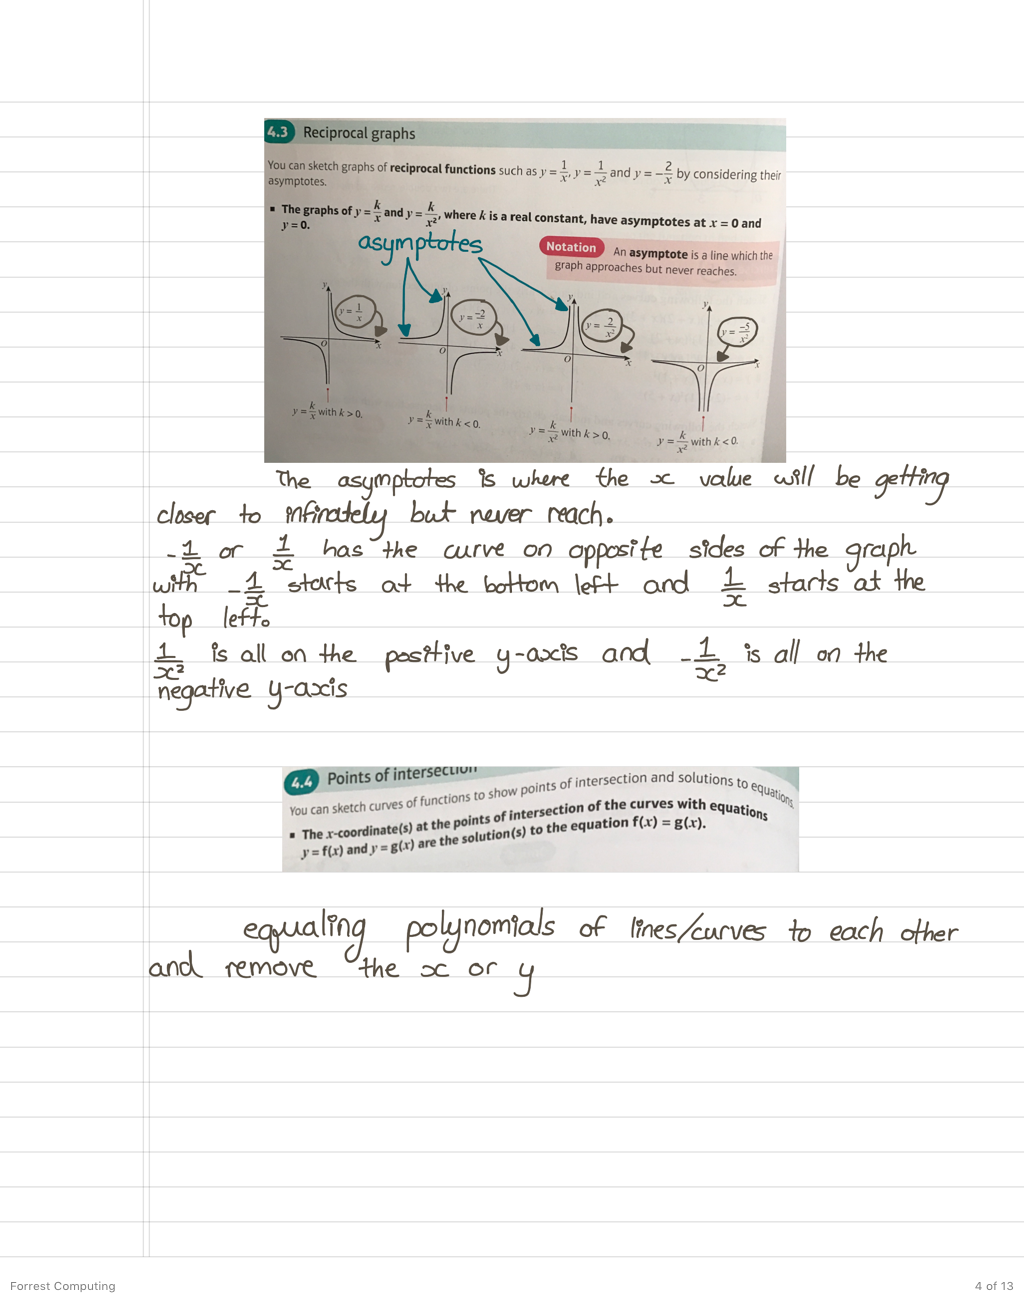 4.3 Reciprocal graphs
You can sketch graphs of reciprocal functions such as y = 1/x, y = 1/x² and y = −2/x by considering their
asymptotes.
▪ The graphs of y = k/x and y = k/x², where k is a real constant, have asymptotes at x = 0 and
y = 0.
asymptotes
Notation An asymptote is a line which the
graph approaches but never reaches.
y y = 1/x O x
y y = −2/x O x
y y = 2/x² O x
y y = −5/x² O x
y = k/x with k > 0.
y = k/x with k < 0.
y = k/x² with k > 0.
y = k/x² with k < 0.
The asymptotes is where the x value will be getting
closer to infinately but never reach.
-1/x or 1/x has the curve on opposite sides of the graph
with -1/x starts at the bottom left and 1/x starts at the
top left.
1/x² is all on the positive y-axis and -1/x² is all on the
negative y-axis
4.4 Points of intersection
You can sketch curves of functions to show points of intersection and solutions to equations.
▪ The x-coordinate(s) at the points of intersection of the curves with equations
y = f(x) and y = g(x) are the solution(s) to the equation f(x) = g(x).
equaling polynomials of lines/curves to each other
and remove the x or y
Forrest Computing
4 of 13